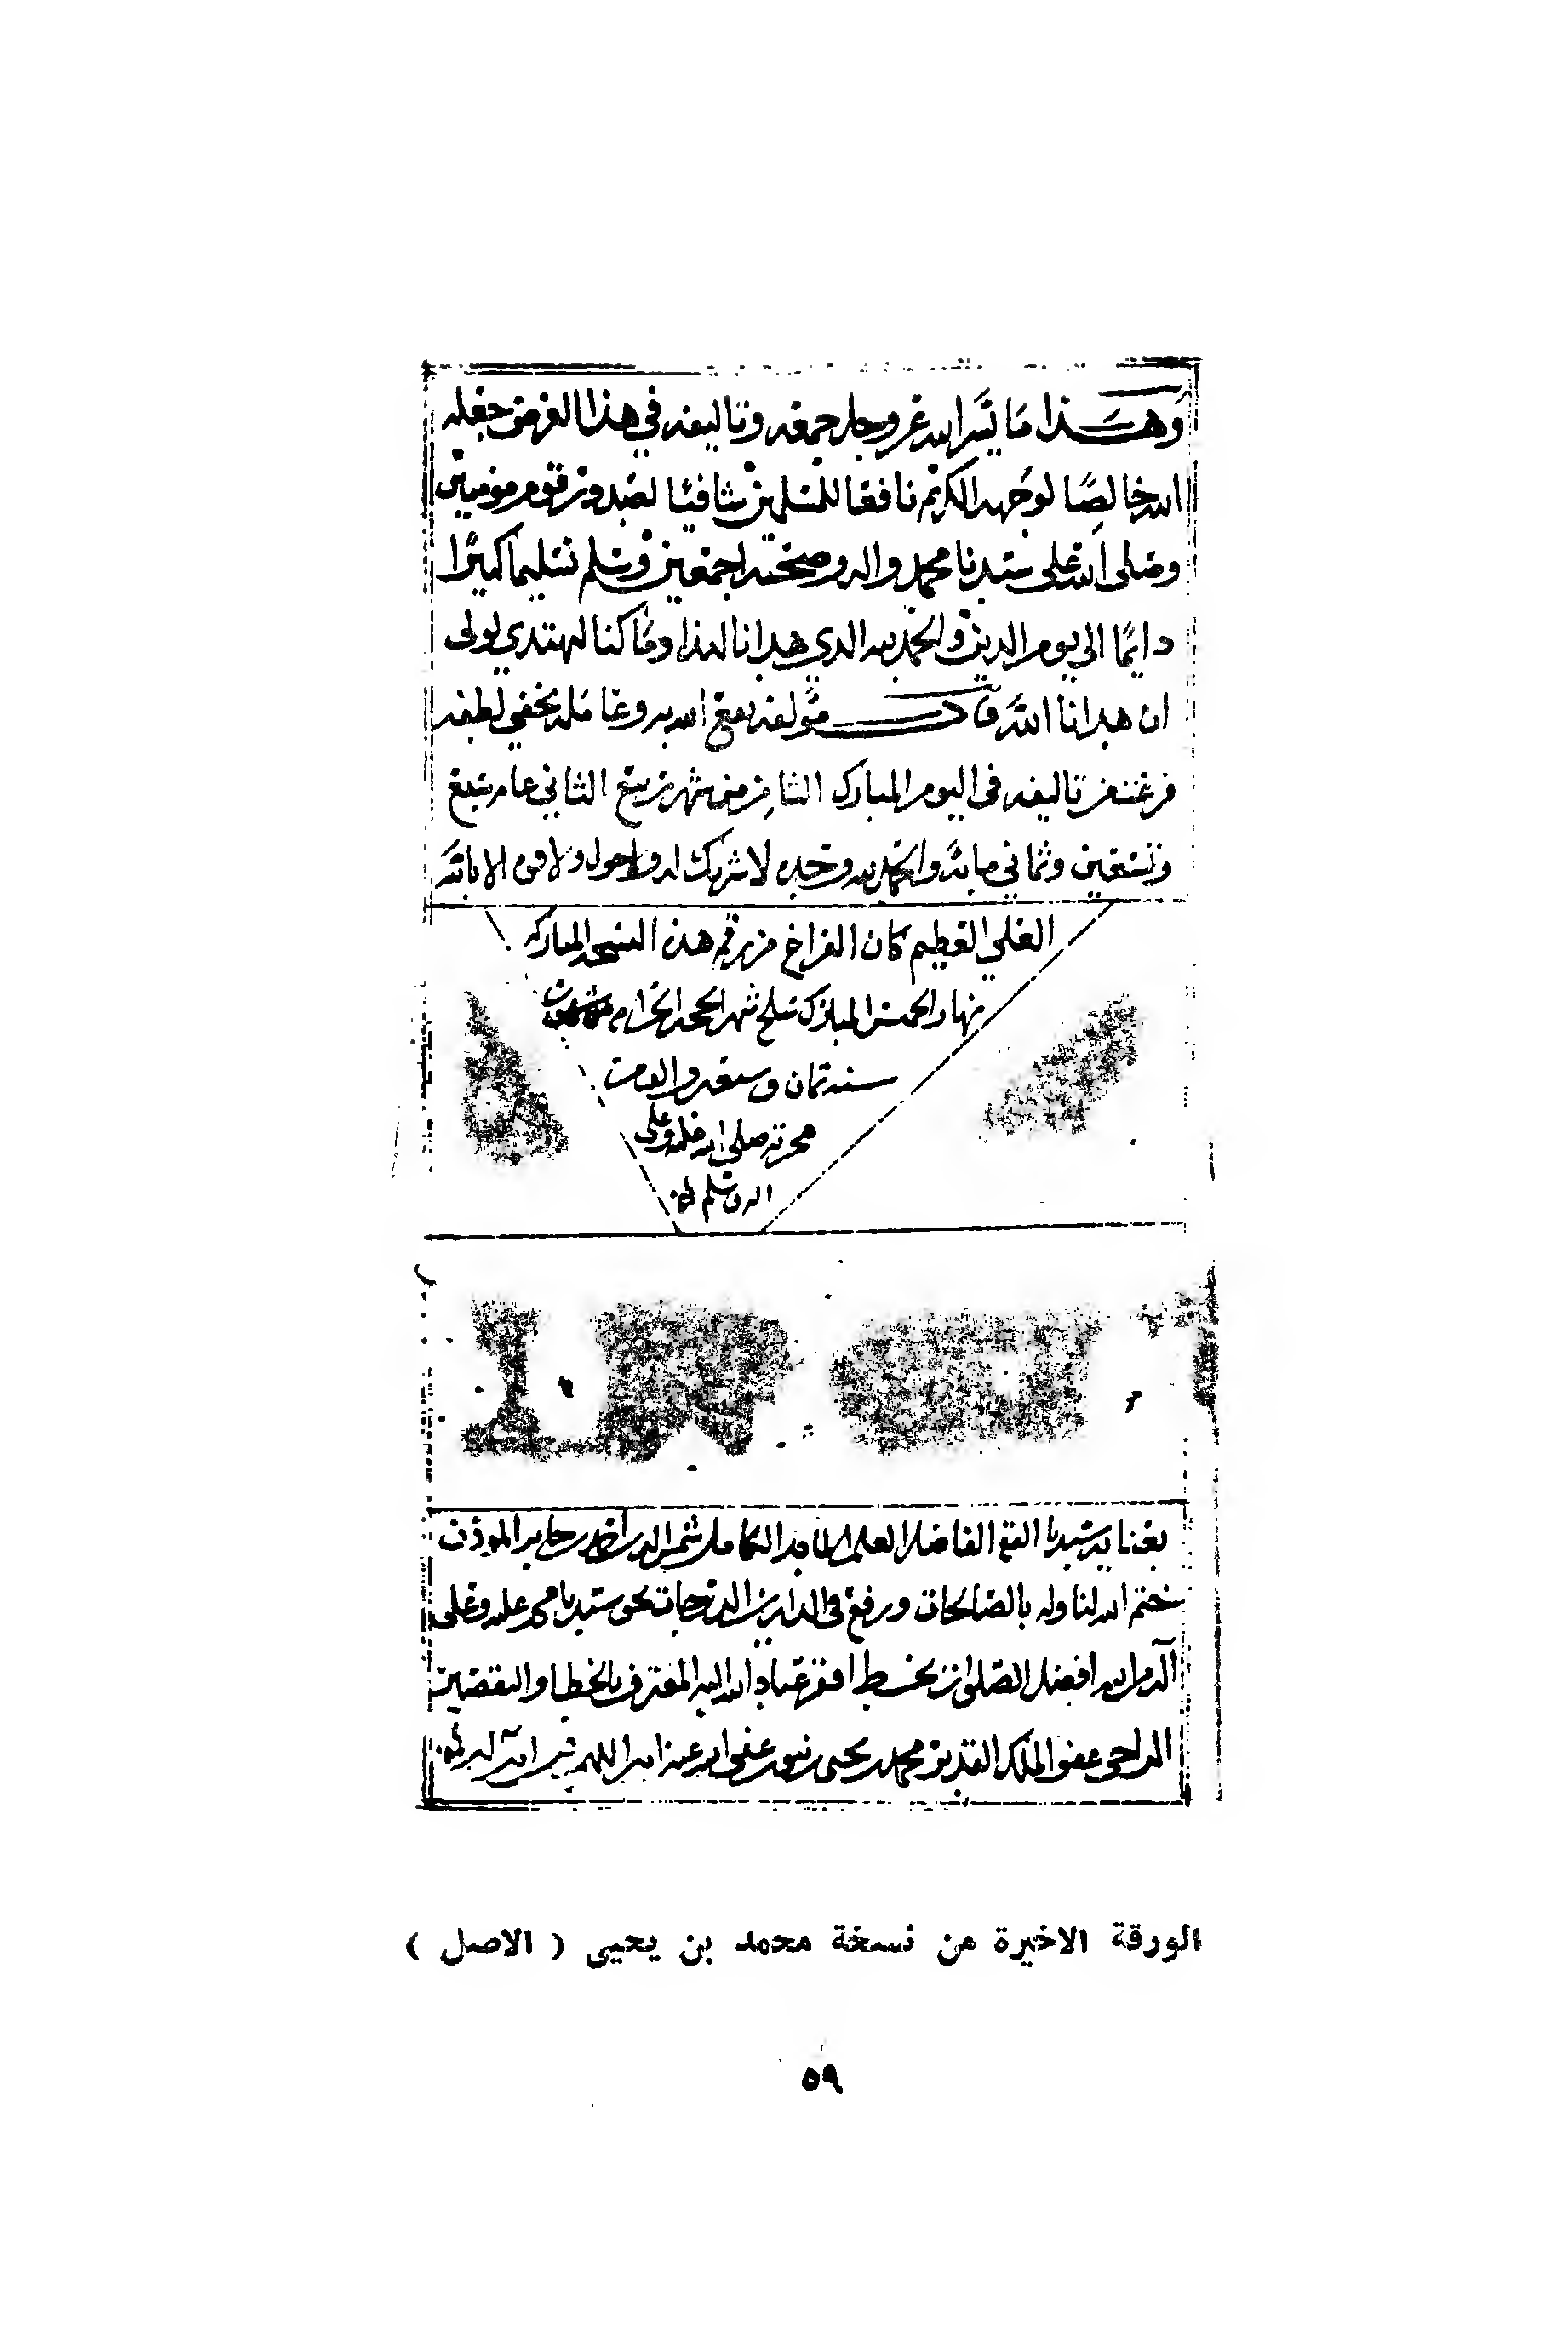 وهذا ما يسر الله عز وجل جمعه وتاليفه في هذا الغرض جعله
الله خالصًا لوجهه الكريم نافعا للمسلمين شافيا لصدور قوم مومنين
وصلى الله على سيدنا محمد واله وصحبه اجمعين وسلم تسليما كثيرًا
دايمًا الى يوم الدين والحمد لله الذي هدانا لهذا وما كنا لنهتدي لولى
ان هدانا الله قال مؤلفه نفع الله به وعامله بخفي لطفه
فرغت من تاليفه في اليوم المبارك الثامن من شهر ربيع الثاني عام سبع
وتسعين وثماني مايه والحمد لله وحده لا شريك له ولا حول ولا قوه الا بالله
العلي العظيم كان الفراغ من رقم هذه النسخه المباركه
نهار الخميس المبارك سلخ شهر الحجه الحرام من شهور
سنه ثمان وسبعه والف من
هجرته صلى الله عليه وعلى
اله وسلم
بعنايه سيدنا الفقيه الفاضل العلم الماجد الكامل شمس الدين احمد بن جابر الموذن
ختم الله لنا وله بالصالحات ورفع في الدارين الدرجات بحق سيدنا محمد عليه وعلى
آله من الله افضل الصلوات بخط افقر عباد الله اليه المعترف بالخطا والتقصير
الراجي عفو الملك القدير محمد بن يحيى عفى الله عنه امين اللهم امين
الورقة الاخيرة من نسخة محمد بن يحيى ( الاصل )
٥٩